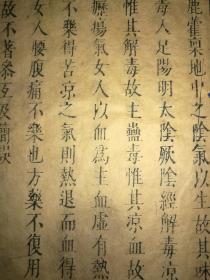 鹿藿稟地中之陰氣以生故其
毒入足陽明太陰厥陰經解毒涼
惟其解毒故主蠱毒惟其涼血故
癧瘍氣女人以血為主血虛有熱
不樂得苦涼之氣則熱退而血得
女人腰腹痛不樂也方藥不復用
故不著參互及簡誤